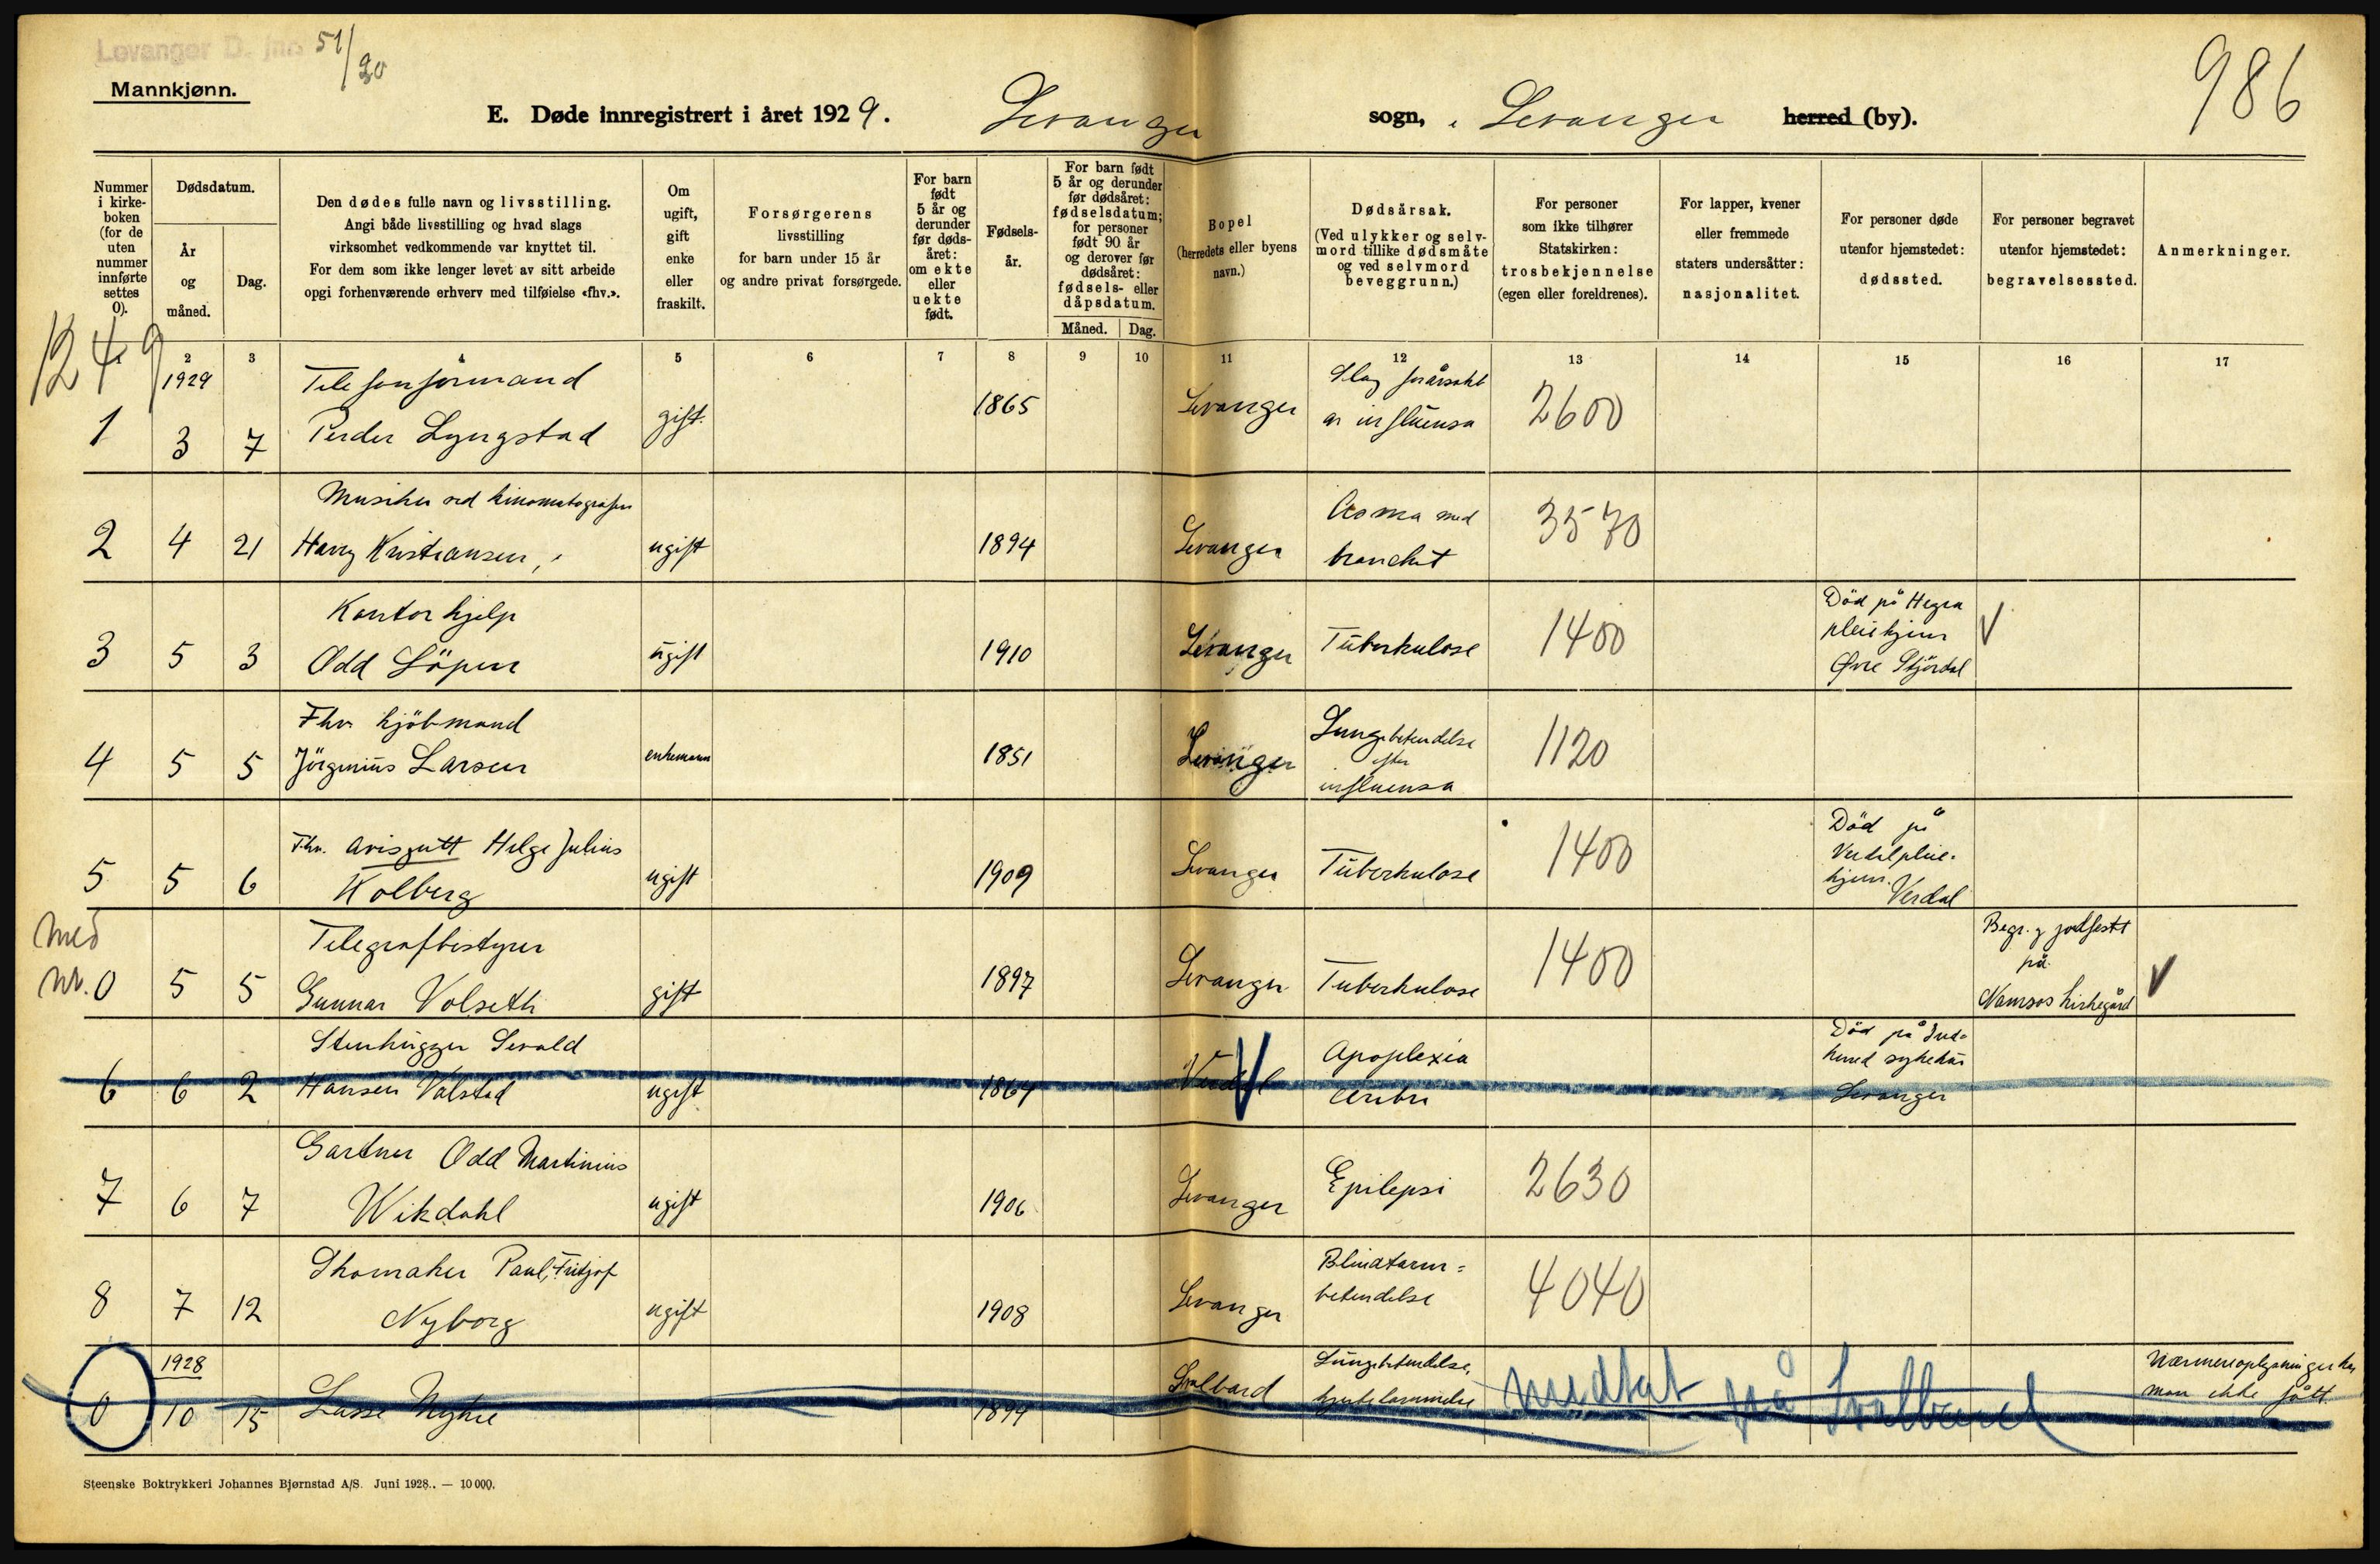 Levanger D. jno 51/30
Mannkjønn.
986
E. Døde innregistrert i året 1929. Levanger sogn, Levanger herred (by).
Nummer i kirkeboken (for de uten nummer innførte settes 0).
Dødsdatum.
År og måned.
Dag.
Den dødes fulle navn og livsstilling.
Angi både livsstilling og hvad slags
virksomhet vedkommende var knyttet til.
For dem som ikke lenger levet av sitt arbeide
opgi forhenværende erhverv med tilføielse «fhv.».
Om ugift, gift enke eller fraskilt.
Forsørgerens livsstilling for barn under 15 år og andre privat forsørgede.
For barn født 5 år og derunder før dødsåret: om ekte eller uekte født.
Fødselsår.
For barn født 5 år og derunder før dødsåret: fødselsdatum; for personer født 90 år og derover før dødsåret: fødsels- eller dåpsdatum.
Måned. Dag.
Bopel (herredets eller byens navn.)
Dødsårsak. (Ved ulykker og selvmord tillike dødsmåte og ved selvmord beveggrunn.)
For personer som ikke tilhører Statskirken: trosbekjennelse (egen eller foreldrenes).
For lapper, kvener eller fremmede staters undersåtter: nasjonalitet.
For personer døde utenfor hjemstedet: dødssted.
For personer begravet utenfor hjemstedet: begravelsessted.
Anmerkninger.
1249
2 3 4 5 6 7 8 9 10 11 12 13 14 15 16 17
1929 Telefonformand Slag forårsaket
1 3 7 Peder Lyngstad gift 1865 Levanger av influensa 2600
Musiker ved kinomatografen Asma med
2 4 21 Harry Kristiansen, ugift 1894 Levanger bronchit 3570
Kontorhjelp Död på Hegra
3 5 3 Odd Löpen ugift 1910 Levanger Tuberkulose 1400 pleiehjem
Øvre Stjördal
Fhv. kjöbmand Lungebetendelse
4 5 5 Jörginius Larsen enkemann 1851 Levanger efter 1120
influensa
Fhv. avisgutt Helge Julius Död på
5 5 6 Kolberg ugift 1909 Levanger Tuberkulose 1400 Verdal pleie-
hjem. Verdal
Med Telegrafbestyrer Begr. og jordfestt
nr. 0 5 5 Gunnar Volseth gift 1897 Levanger Tuberkulose 1400 på
Namsos kirkegård
Stenhugger Sevald Apoplexia Död på Inn-
6 6 2 Hansen Valstad ugift 1864 Verdal herred sykehus
Levanger
Gartner Odd Martinius
7 6 7 Wikdahl ugift 1906 Levanger Epilepsi 2630
Skomaker Paul Fritjof Blindtarm-
8 7 12 Nyborg ugift 1908 Levanger betendelse 4040
1928 Lungebetendelse, Nærmere oplysninger har
0 10 15 Lasse 1894 Svalbard hjertelammelse medtat på Svalbard man ikke fått.
Steenske Boktrykkeri Johannes Bjørnstad A/S. Juni 1928. — 10 000.